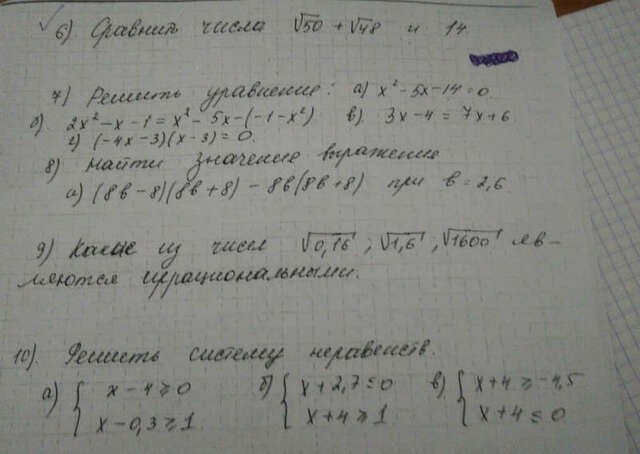 6) Сравнить числа √50 + √48 и 14
7) Решить уравнение: а) x² - 5x - 14 = 0
б). 2x² - x - 1 = x² - 5x - (-1 - x²) в) 3x - 4 = 7x + 6
г) (-4x - 3)(x - 3) = 0.
8) Найти значение выражение
а) (8в - 8)(8в + 8) - 8в(8в + 8) при в = 2,6
9) Какие из чисел √0,16 ; √1,6 ; √1600 яв-
ляются иррациональными.
10). Решить систему неравенств.
а) { x - 4 ≥ 0 б) { x + 2,7 ≤ 0 в) { x + 4 ≥ -4,5
x - 0,3 ≥ 1 x + 4 ≥ 1 x + 4 ≤ 0